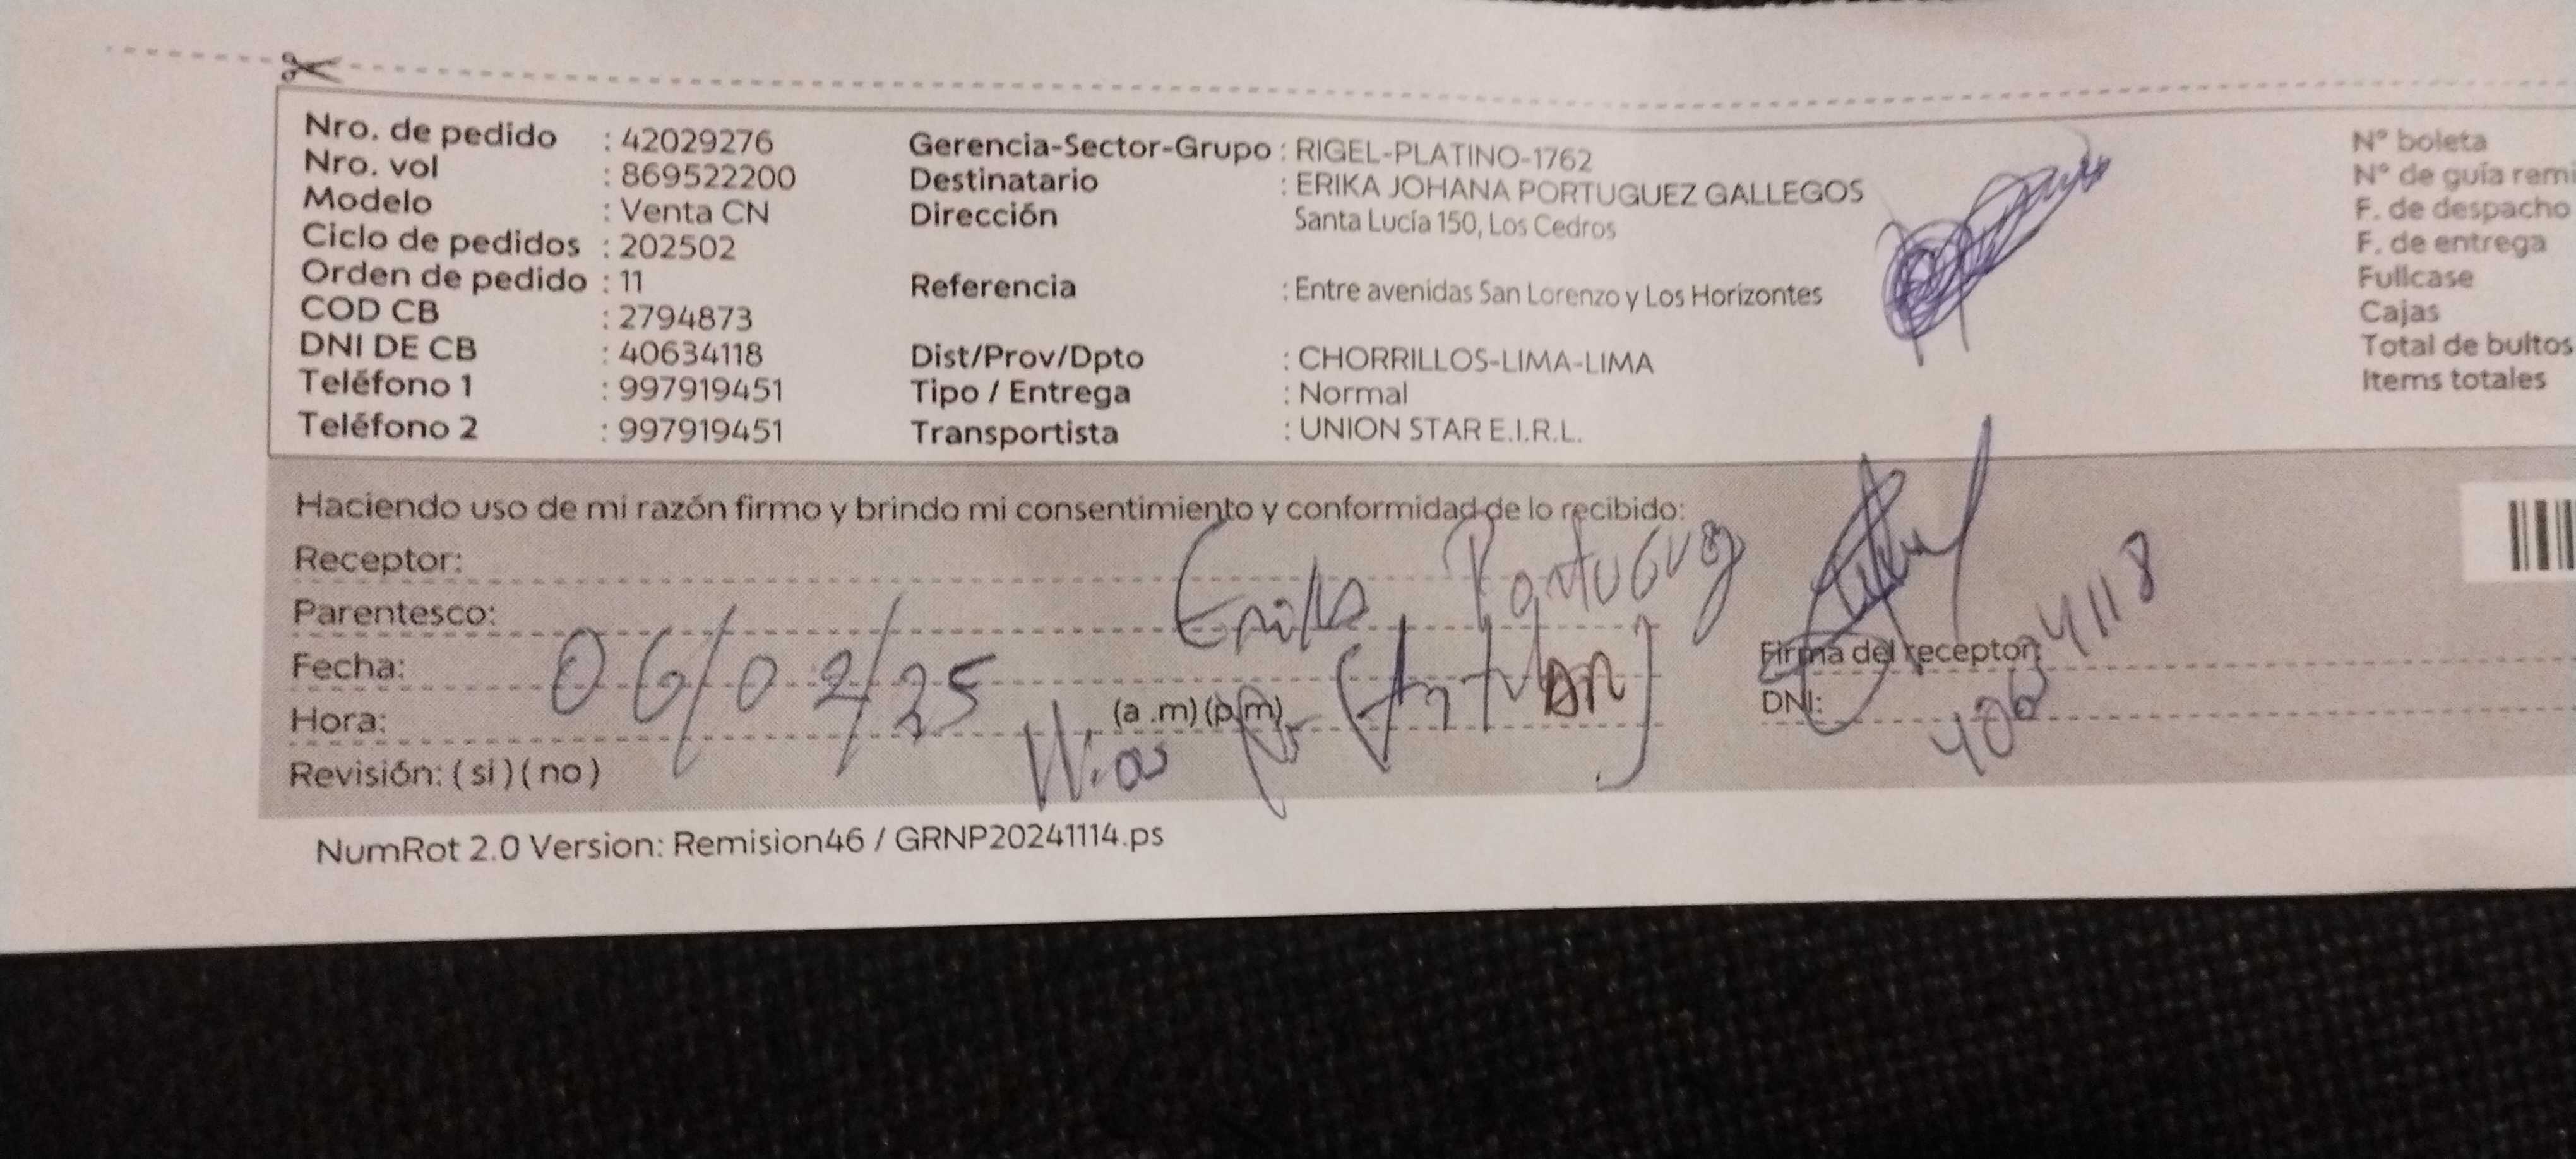 Nro. de pedido : 42029276 Gerencia-Sector-Grupo : RIGEL-PLATINO-1762 N° boleta
Nro. vol : 869522200 Destinatario : ERIKA JOHANA PORTUGUEZ GALLEGOS N° de guía remi
Modelo : Venta CN Dirección Santa Lucía 150, Los Cedros F. de despacho
Ciclo de pedidos : 202502 F. de entrega
Orden de pedido : 11 Referencia : Entre avenidas San Lorenzo y Los Horizontes Fullcase
COD CB : 2794873 Cajas
DNI DE CB : 40634118 Dist/Prov/Dpto : CHORRILLOS-LIMA-LIMA Total de bultos
Teléfono 1 : 997919451 Tipo / Entrega : Normal Items totales
Teléfono 2 : 997919451 Transportista : UNION STAR E.I.R.L.
Haciendo uso de mi razón firmo y brindo mi consentimiento y conformidad de lo recibido:
Receptor: Erika Portuguez
Parentesco: Firma del receptor:
Fecha: 06/02/25 DNI: 40634118
Hora: (a .m) (p.m)
Revisión: ( si ) ( no )
NumRot 2.0 Version: Remision46 / GRNP20241114.ps